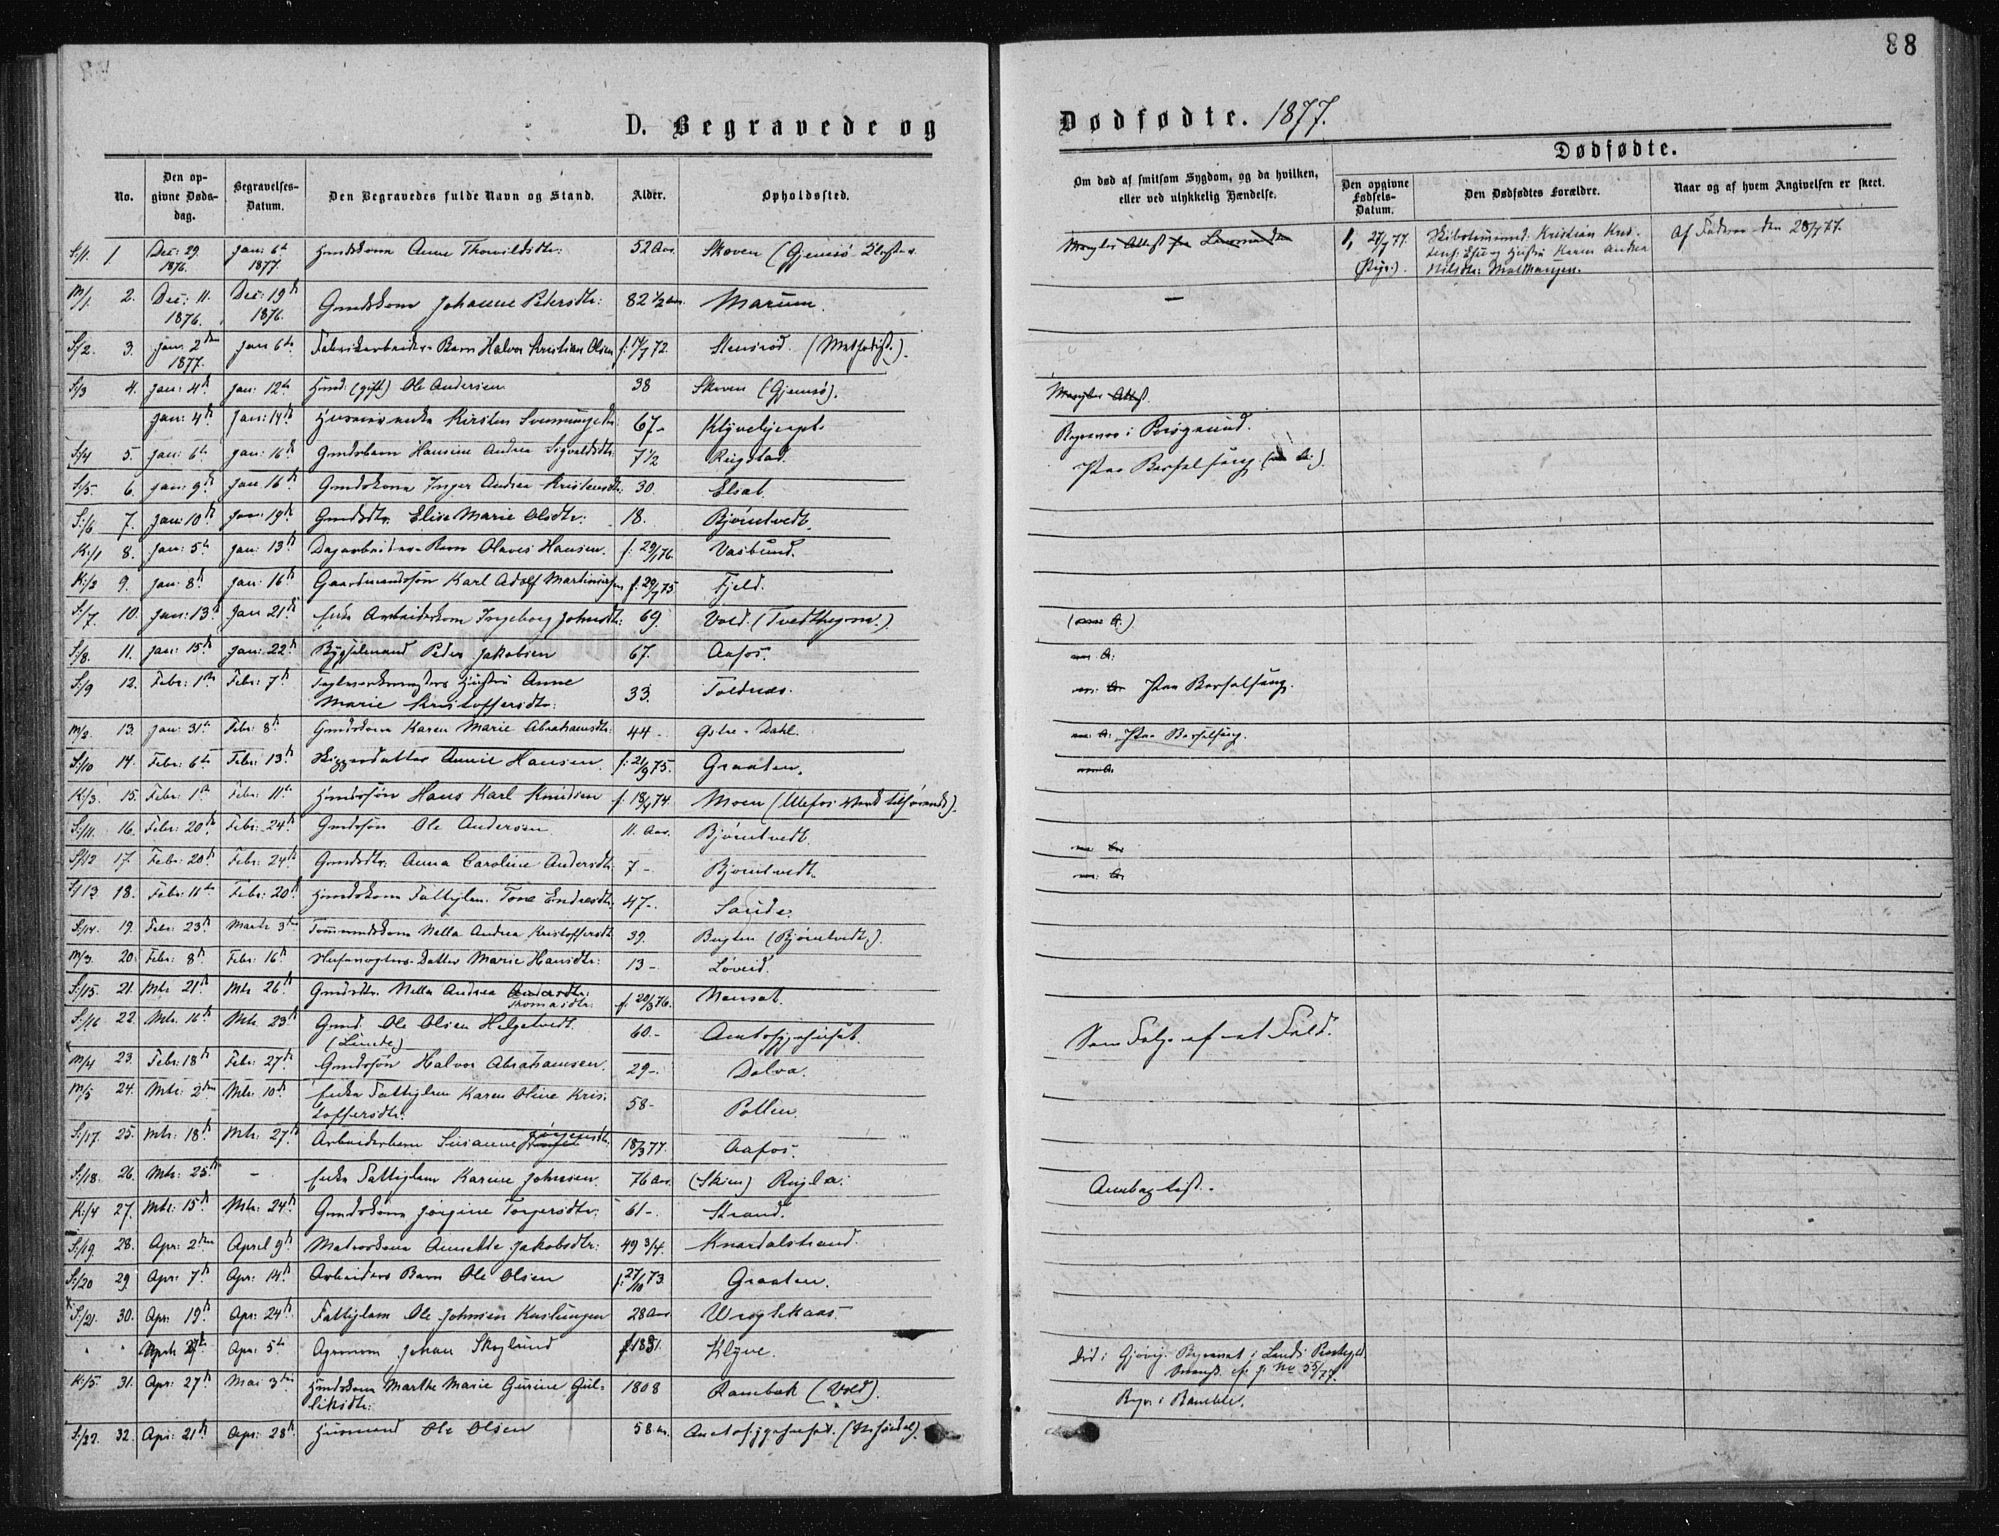 88
D. Begravede og
Dødfødte. 1877.
No.
Den opgivne Dødsdag.
Begravelses-Datum.
Den Begravedes fulde Navn og Stand.
Alder.
Opholdssted.
Om død af smitsom Sygdom, og da hvilken, eller ved ulykkelig Hændelse.
Dødfødte.
Den opgivne Fødsels-Datum.
Den Dødfødtes Forældre.
Naar og af hvem Angivelsen er skeet.
S/1. 1 Dec: 29 1876. Jan: 6te 1877. Anne Thorvildsdtr: 52 Aar. Skoven (Gjemsø Kloster
M/1. 2. Dec: 11. 1876. Dec: 19de 1876. Gmdskone Johanne Pedersdtr: 82 1/2 Marum.
S/2. 3. Jan: 2den 1877. Jan 6te Fabrikarbeider-Barn Halvor Kristian Olsen f: 14/7 72. Stensrød. (Methodist.).
S/3 4. Jan: 4de Jan: 12te Hmd: (gift) Ole Andersen 38 Skoven (Gjemsø).
Jan: 4de Jan: 14de Kirsten 67- Klyvehjerpt. Begravet i Porsgrund.
S/4 5. Jan: 6te Jan: 16de Gmdsbarn Hansine Andrea Sigvaldsdtr: 7 1/2 Rugstad.
S/5. 6. Jan: 9de Jan 16de Gmdskone Inger Andrea Kristensdtr: 30. Elsat. Paa Barselseng
S/6 7. Jan: 10de Jan: 19de Gmdsdtr. Elise Marie Olsdtr: 18. Bjørntvedt.
K/1 8. Jan: 5te Jan: 13de Dagarbeider-Barn Olaves Hansen. f: 29/1 76. Vasbund.
K/2 9. Jan: 8de Jan: 16de Gaardmandssøn Karl Adolf Martiniusen f: 29/7 75 Fjeld.
S/7. 10. Jan: 13de Jan 21de Enke Arbeiderkone Ingeborg Johnsdtr: 69. Vold. (Tvedthegna.)
S/8. 11. Jan: 15de Jan: 22de Bygselmand Peder Jakobsen 67. Aafos.
S/9 12. Febr: 1ste Febr: 7de Hustru Anne
Marie Kristoffersdtr: 33. Toldnæs. Paa Barselseng.
M/2. 13. Jan: 31te Febr: 8de Gmdskone Karen Marie Abrahamsdtr: 44- Østre-Dahl. Paa Barselseng.
S/10 14. Febr: 6te Febr: 13de Skipperdatter Annie Hansen. f: 21/9 75. Graaten.
K/3. 15. Febr: 1ste Febr: 11te Hmdssøn Hans Karl Knudsen f: 18/4 74. Moen (Ulefos Værk tilhørende).
S/11. 16. Febr: 20de Febr: 24de Gmdssøn Ole Andersen 11. Aar. Bjørntvedt.
S/12 17. Febr: 20de Febr: 24de Gmdsdtr. Anna Caroline Andersdtr. 7- Bjørntvedt.
S/13 18. Febr: 11te Febr: 20de Hmdskone Fattiglem. Tone Endresdtr. 47-. Sande.
S/14. 19. Febr: 23de Marts 3die Tømmermdskone Nella Andrea Kristoffersdtr. 39. Bugten (Bjørntvedt.).
M/3. 20. Febr: 8de Febr: 16de Datter Marie Hansdtr: 13-. Løveid.
S/15. 21. Mts 21de Mts 26de Gmdsdtr. Nella Andrea Andersdtr: Thomasdtr. f. 20/3 76. Nensat.
S/16 22. Mts. 16de Mts. 23de Gmd. Ole Olsen Helgetvedt. 60- Amtssygehuset. Som Følge af et Fald.
(Linde)
M/4 23. Febr: 18de Febr: 27de Gmdssøn Halvor Abrahamsen. 29-. Dolva.
M/5 24. Mts: 2den Mts. 10de Enke Fattiglem Karen Oline Kris-
toffersdtr. 58- Pollen.
S/17. 25. Mts: 18de Mts. 27de Arbeiderbarn Susanne Jørgensdtr. 18/3 77. Aafos.
S/18. 26. Mts: 25de - Enke Fattiglem Karine Johnsen. 76 Aar. (Skien)
K/4 27. Mts: 15de Mts: 24de Gmdskone Jørgine Torgersdtr. 61-. Strand.
S/19. 28. Apr: 2den April 9de Matroskone Annette Jakobsdtr: 49 3/4. Knardalstrand.
S/20 29. Apr: 7de Apr: 14de Arbeiders Barn Ole Olsen f: 27/10 73. Graaten.
S/21. 30. Apr. 19de Apr: 24de Fattiglem Ole Johnsen 28 Aar
April Apr: 5te Agronom Johan Skoglund f 1831. Klyve. Død i Gjøvig. Begravet i Lands
K/5. 31. Apr: 27de Mai 3die Hmdskone Marthe Marie Gurine Gul-
liksdtr: 1808 Rambæk (Vold). Begr: i Bamble.
S/22. 32. Apr: 21de Apr: 28de Husmand Ole Olsen 58 Aar. Amtssygehuset.
1, 27/7 77. Kristian
Hustru Karen Andrea
Nilsdtr: Af Faderen den 28/7 77.